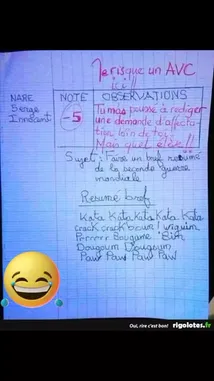 Je risque un AVC
ici !!
NARE
Serge
Innocent
NOTE
-5
OBSERVATIONS
Tu m'as poussé à rédiger
une demande d'affecta-
tion loin de toi.
Mais quel élève !!
Sujet : Faire un bref résumé
de la seconde guerre
mondiale
Résumé bref
Kata Kata Kata Kata Kata
crack crack boum
Perrrrr Bougame Bim
Dougoum Dougoum
Paw Paw Paw Paw
Oui, rire c'est bon! rigolotes.fr